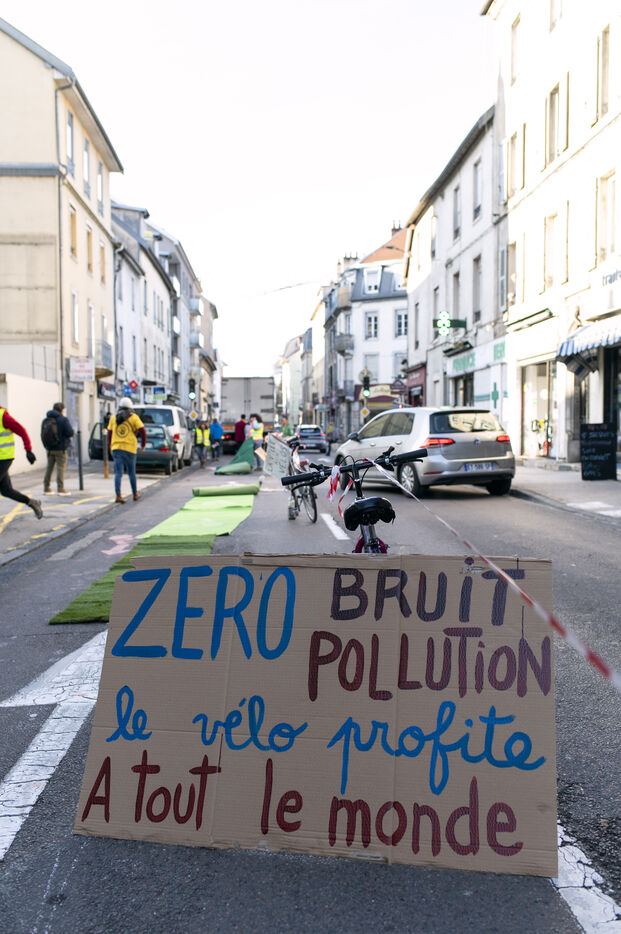 ZERO BRUIT
POLLUTION
le vélo profite
A tout le monde